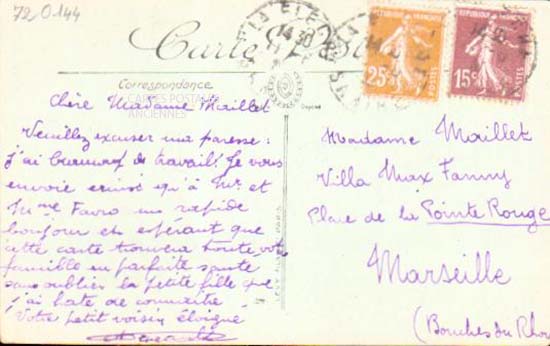 72-0144
LA FLÈCHE
14 30
Carte Postale
RÉPUBLIQUE FRANÇAISE
25c POSTES
RÉPUBLIQUE FRANÇAISE
15c POSTES
Correspondance
CARTES POSTALES
ANCIENNES
Chère Madame Maillet
Veuillez excuser ma paresse :
j'ai beaucoup de travail. Je vous
envoie ainsi qu'à Mr et
Mme Favro un rapide
bonjour en espérant que
cette carte trouvera toute vtre
famille en parfaite santé
sans oublier la petite fille que
j'ai hate de connaitre
Votre petit voisin éloigné
Madame Maillet
Villa Max Fanny
Place de la Pointe Rouge
Marseille
(Bouches du Rhône